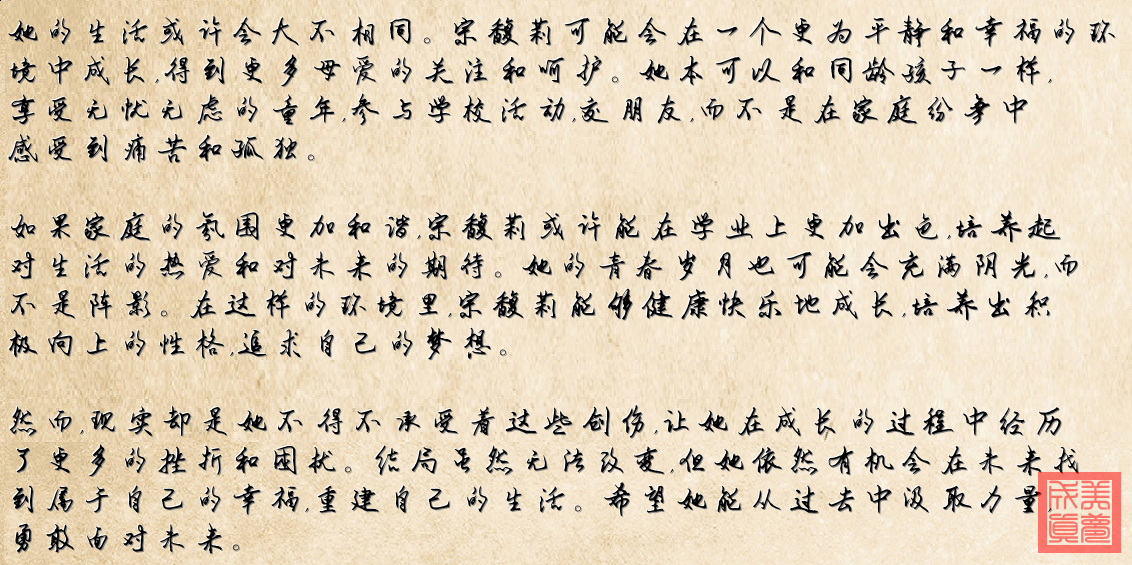 她的生活或许会大不相同。宗馥莉可能会在一个更为平静和幸福的环
境中成长,得到更多母爱的关注和呵护。她本可以和同龄孩子一样,
享受无忧无虑的童年,参与学校活动,交朋友,而不是在家庭纷争中
感受到痛苦和孤独。
如果家庭的氛围更加和谐,宗馥莉或许能在学业上更加出色,培养起
对生活的热爱和对未来的期待。她的青春岁月也可能会充满阴光,而
不是阵影。在这样的环境里,宗馥莉能够健康快乐地成长,培养出积
极向上的性格,追求自己的梦想。
然而,现实却是她不得不承受着这些创伤,让她在成长的过程中经历
了更多的挫折和困扰。结局虽然无法改变,但她依然有机会在未来找
到属于自己的幸福,重建自己的生活。希望她能从过去中汲取力量,
勇敢面对未来。
美梦成真